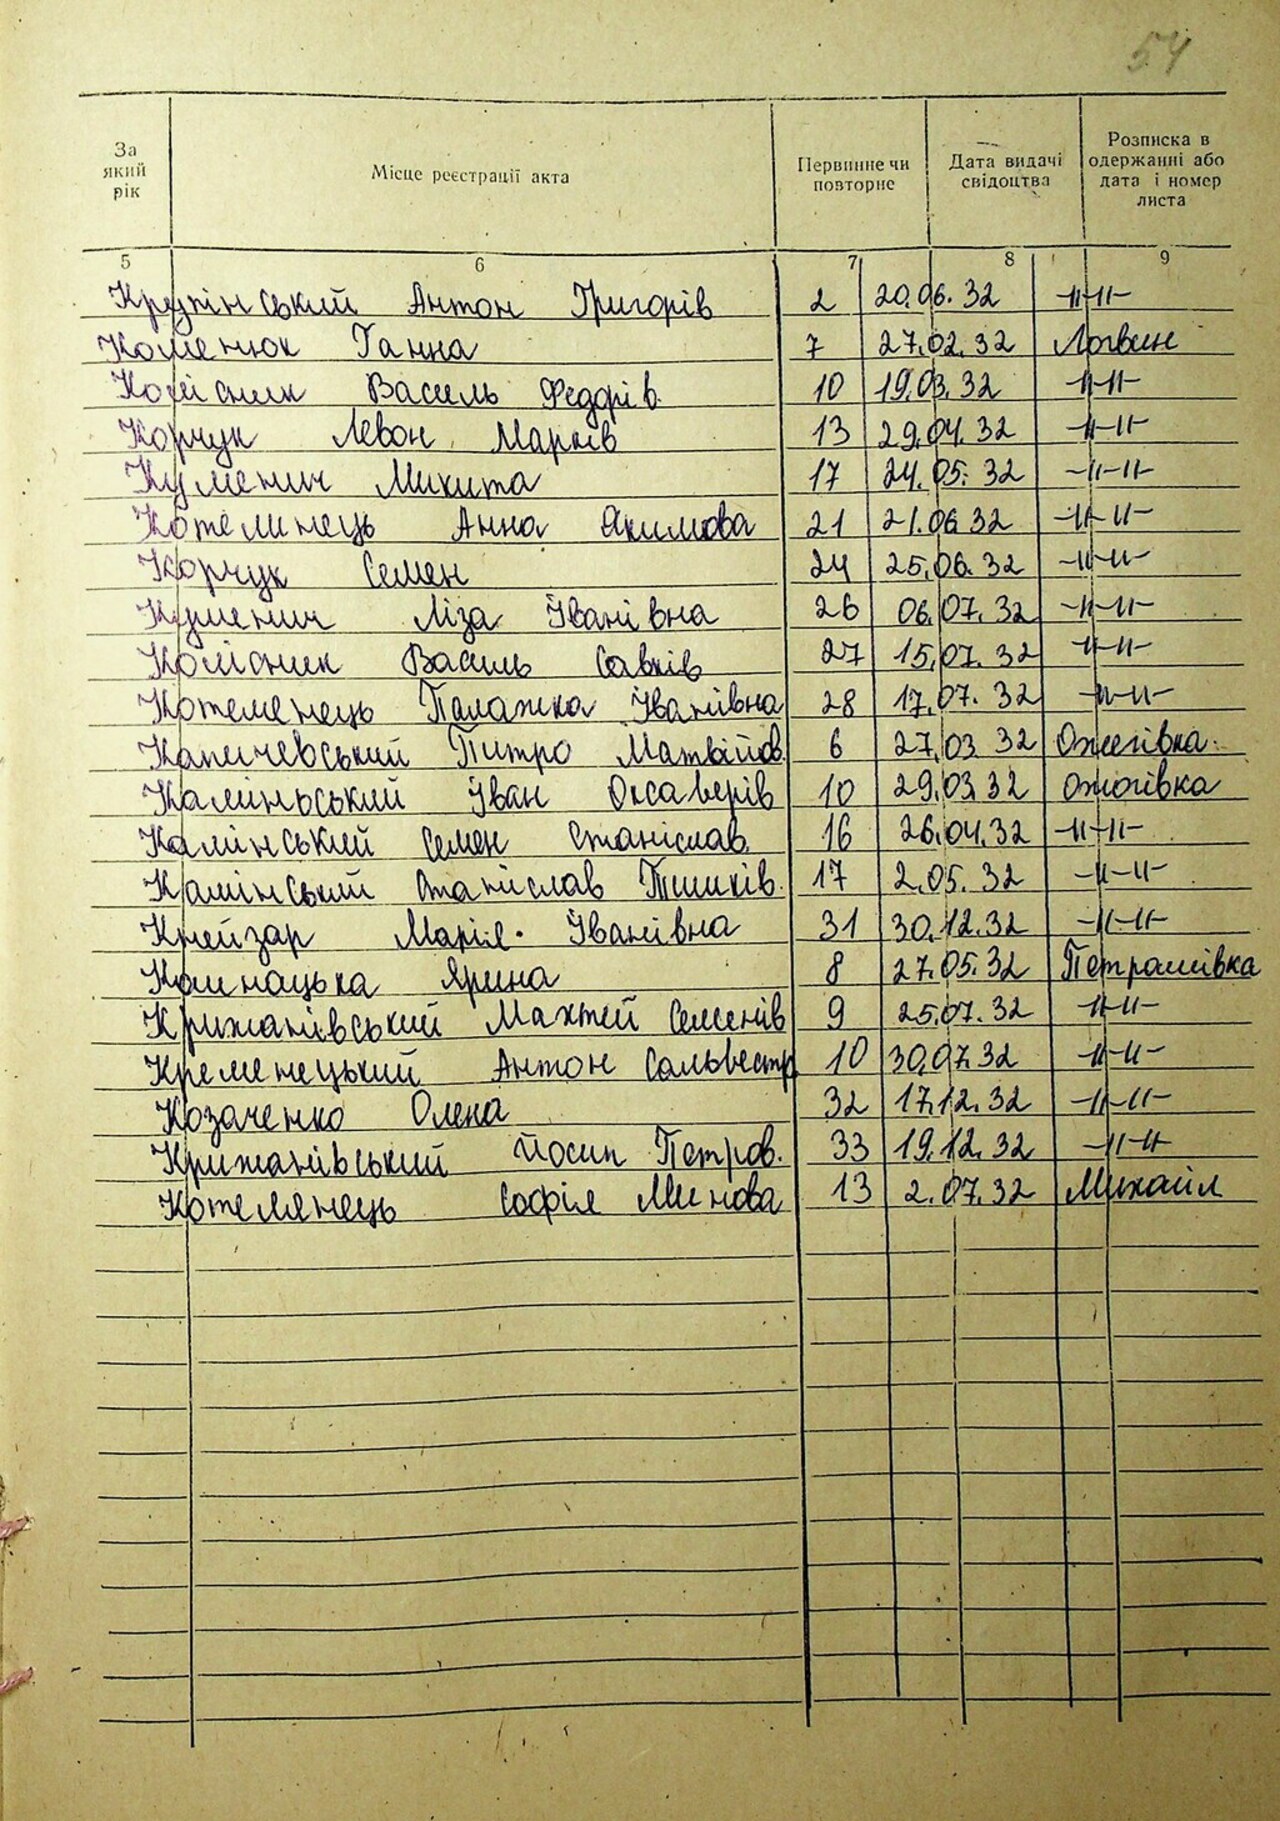 54
За який рік Місце реєстрації акта Первинне чи повторне Дата видачі свідоцтва Розписка в одержанні або дата і номер листа
5 6 7 8 9
Крупінський Антон Григорів 2 20.06.32 -"-"-
Коменюк Ганна 7 27.02.32 Логвин
Колісник Василь Федорів 10 19.03.32 -"-"-
Корчук Левон Марків 13 29.04.32 -"-"-
Куменич Микита 17 24.05.32 -"-"-
Котелинець Анна Якимова 21 21.06.32 -"-"-
Корчук Семен 24 25.06.32 -"-"-
Куменич Ліза Іванівна 26 06.07.32 -"-"-
Колісник Василь Савків 27 15.07.32 -"-"-
Котеленець Палажка Іванівна 28 17.07.32 -"-"-
Капичевський Питро Матвійов. 6 27.03.32 Ожегівка
Каминьський Іван Оксаверів 10 29.03.32 Ожогівка
Камінський Семен Станіслав. 16 26.04.32 -"-"-
Камінський Станіслав 17 2.05.32 -"-"-
Кнейзар Марія Іванівна 31 30.12.32 -"-"-
Ярина 8 27.05.32 Петрашівка
Крижанівський Махтей Семенів 9 25.07.32 -"-"-
Кременецький Антон Сальвестр 10 30.07.32 -"-"-
Козаченко Олена 32 17.12.32 -"-"-
Крижанівський Йосип Петров. 33 19.12.32 -"-"-
Котелянець Софія Минова 13 2.07.32 Михайл